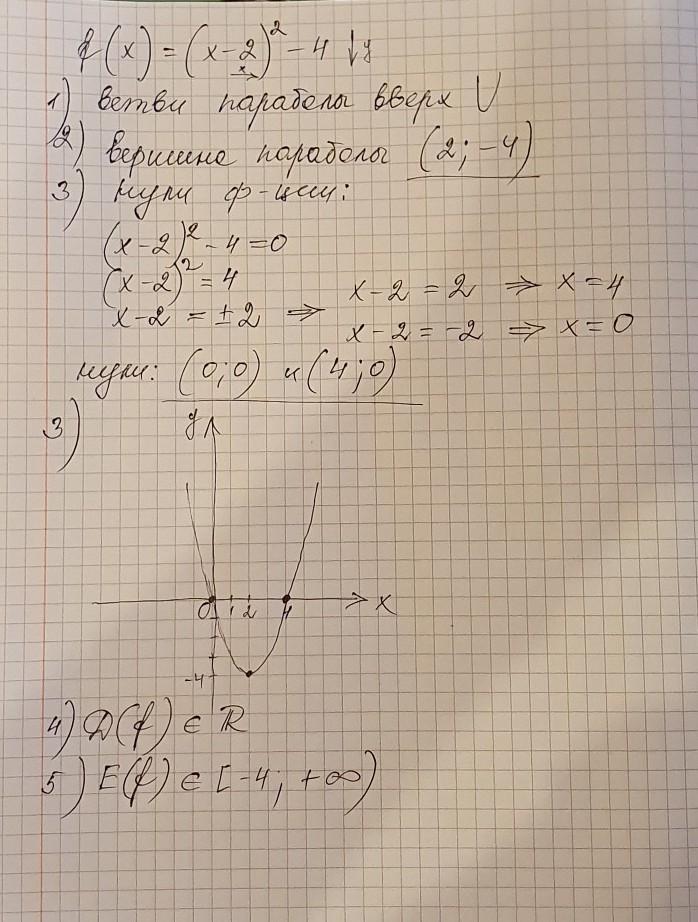 f(x) = (x-2)² - 4 ↓y
x→
1) ветви параболы вверх ∪
2) вершина параболы (2; -4)
3) нули ф-ции:
(x-2)² - 4 = 0
(x-2)² = 4
x-2 = ±2 ⇒ x-2 = 2 ⇒ x = 4
x-2 = -2 ⇒ x = 0
нули: (0;0) и (4;0)
3)
y
0 1 2 4 x
-4
4) D(f) ∈ ℝ
5) E(f) ∈ [-4; +∞)